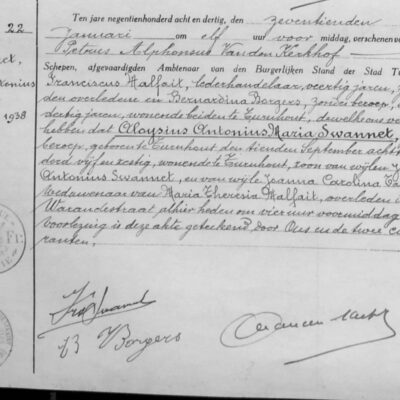 22
Ten jare negentienhonderd acht en dertig, den zeventienden
Januari om elf uur voor middag, verschenen v
Petrus Alphonsus Vanden Kerkhof
net, Schepen, afgevaardigden Ambtenaar van den Burgerlijken Stand der Stad T
onius Franciscus Halfait, lederhandelaar, veertig jaren, z
den overledene en Bernardina Borgers, zonder beroep,
1938 dertig jaren, wonende beiden te Turnhout, dewelke ons ve
hebben dat Aloysius Antonius Maria Swannet,
beroep, geboren te Turnhout den tienden September achti
derd vijf en zestig, wonende te Turnhout, zoon van wijlen J
Antonius Swannet, en van wijle Joanna Carolina Pa
Weduwenaar van Maria Theresia Halfait, overleden i
Warandestraat alhier heden om vier uur voormiddag
Voorlezing is deze akte geteekend door Ons en de twee
ranten.
B Borgers